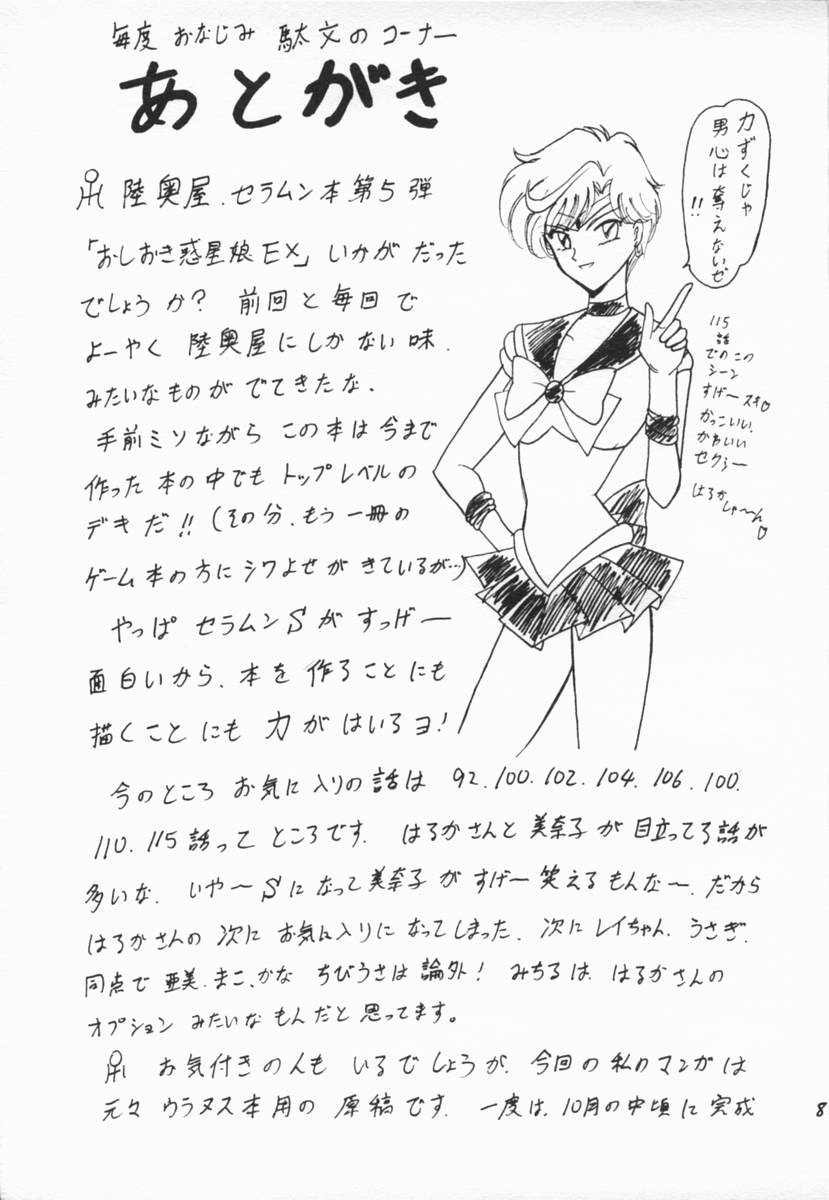 毎度 おなじみ 駄文のコーナー
あとがき
陸奥屋.セラムン本第5弾
「おしおき惑星娘EX」いかがだった
でしょうか? 前回と毎回で
よーやく 陸奥屋にしかない味.
みたいなものがでてきたな、
手前ミソながら この本は今まで
作った本の中でも トップレベルの
デキだ!!(その分、もう一冊の
ゲーム本の方にシワよせがきているが…)
やっぱ セラムンSが すっげー
面白いから、本を作ることにも
描くことにも 力がはいるヨ!
今のところ お気に入りの話は 92.100.102.104.106.100.
110.115話って ところです. はるかさんと美奈子が目立ってる話が
多いな. いや〜Sになって美奈子が すげー笑えるもんな〜.だから
はるかさんの 次に お気に入りに なってしまった. 次に レイちゃん. うさぎ.
同点で 亜美.まこ、かな ちびうさは論外! みちるは はるかさんの
オプション みたいな もんだと 思ってます。
お気付きの人も いるでしょうが、今回の私のマンガは
元々 ウラヌス本用の 原稿です. 一度は、10月の中頃に完成
力ずくじゃ
男心は奪えないぜ
!!
115
話
でのこの
シーン
すげースキ♡
かっこいい.
かわいい
セクシー
はるか
しゃ〜ん♡
8